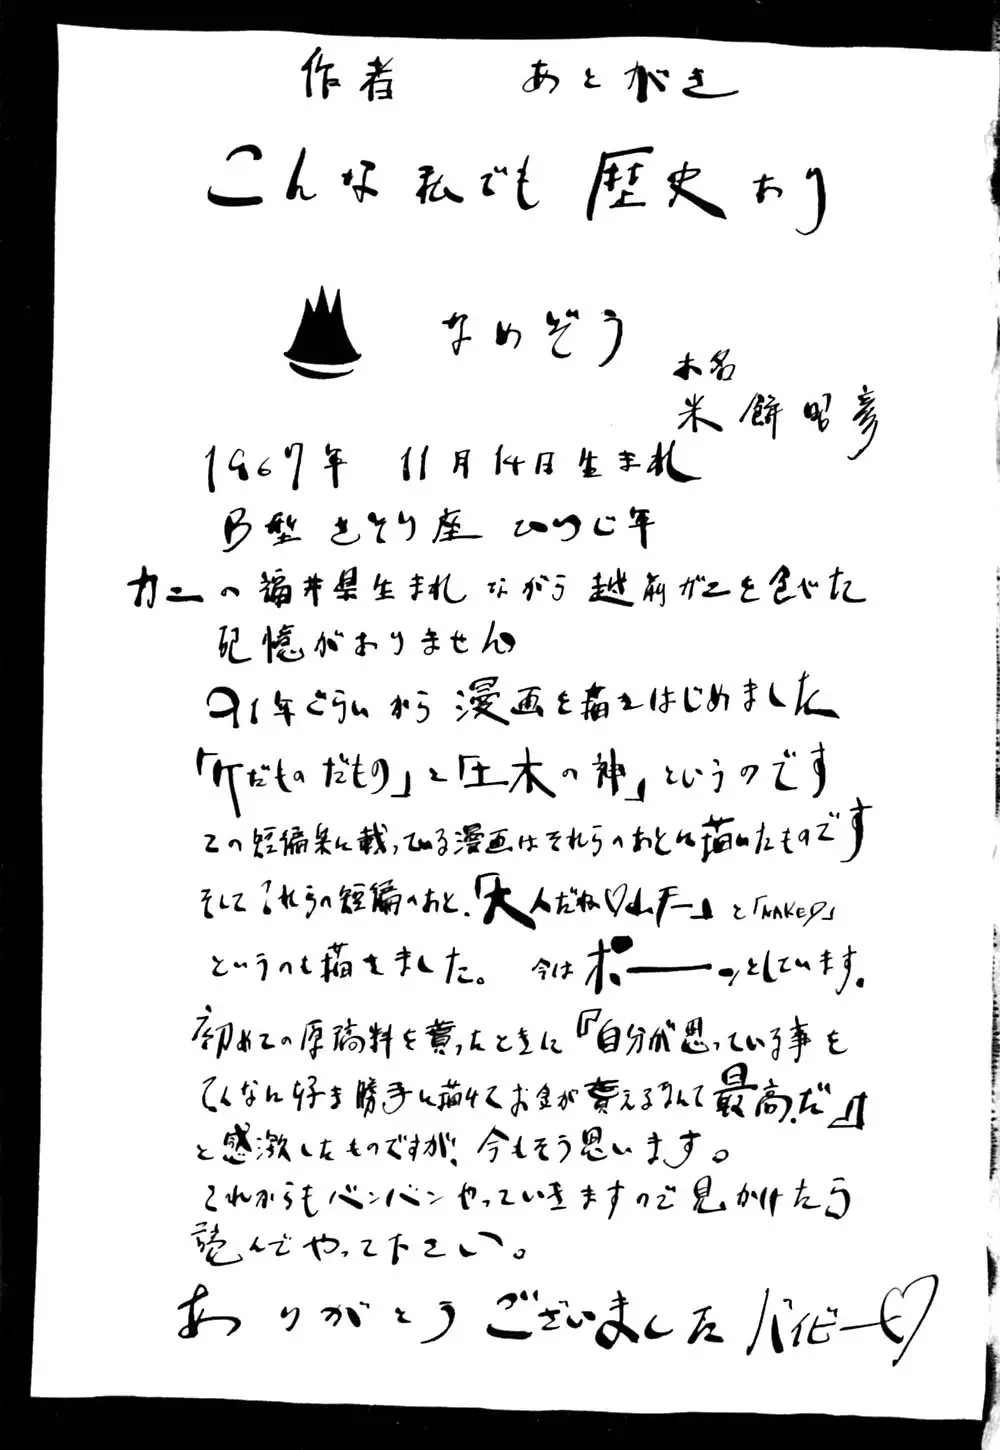 作者 あとがき
こんな私でも 歴史あり
なめぞう
本名
米餅昭彦
1967年 11月14日生まれ
B型 さそり座 ひつじ年
カニの福井県生まれながら越前ガニを食べた
記憶がありません
91年ぐらいから漫画を描きはじめました
「けだものだもの」と「土木の神」というのです
この短編集に載っている漫画はそれらのあとに描いたものです
そしてこれらの短編のあと、「大人だね♡ムチー」と「NAKED」
というのも描きました。 今はボーーーッとしています。
初めての原稿料を貰ったときに『自分が思っている事を
こんなに好き勝手に描けてお金が貰えるなんて最高だ』
と感激したものですが、今もそう思います。
これからもバンバンやっていきますので見かけたら
読んでやって下さい。
ありがとうございました バイビー♡